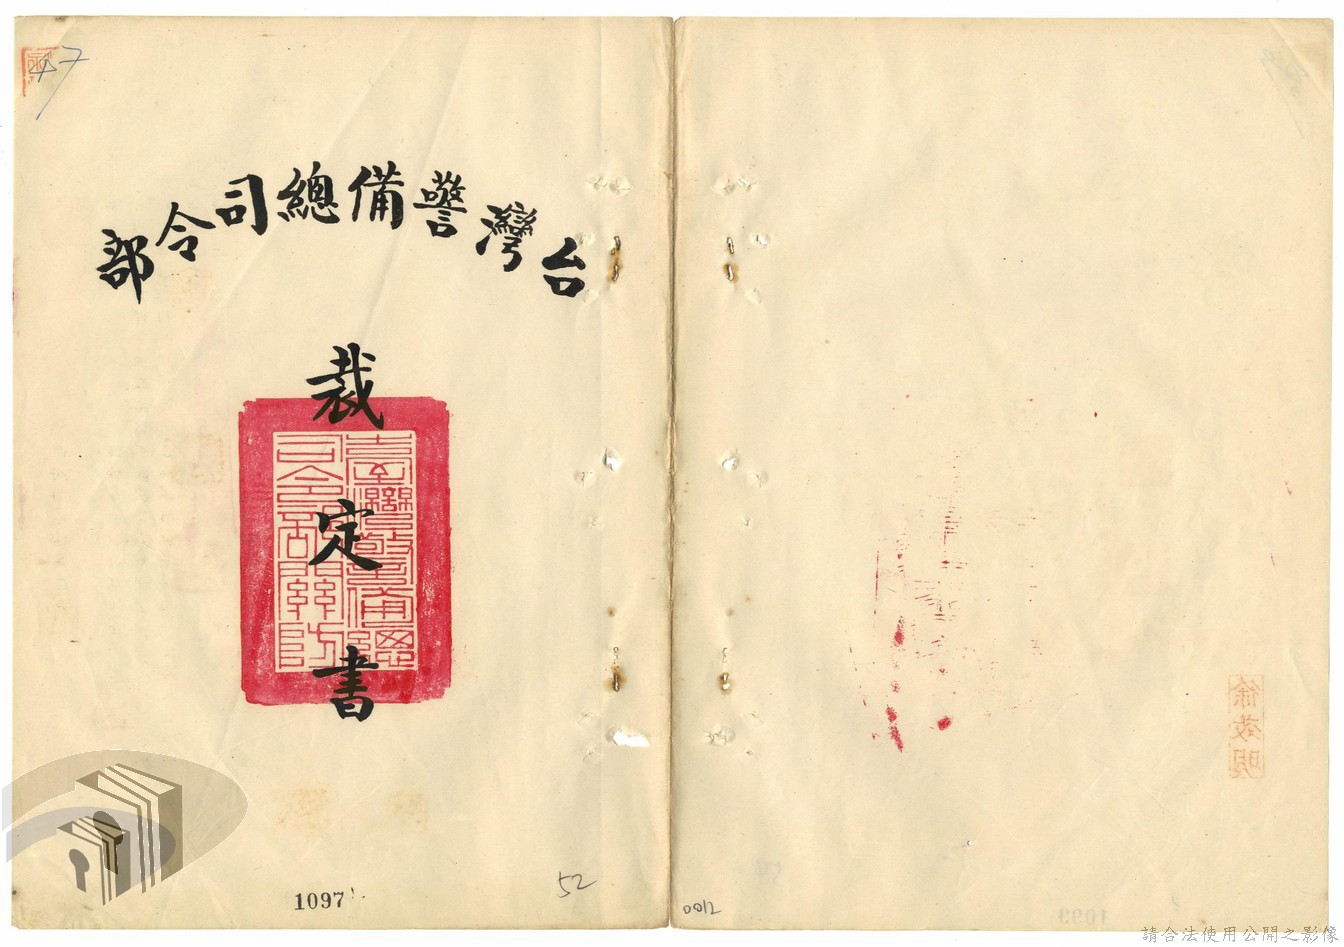 47
台灣警備總司令部
裁定書
臺灣警備總
司令部關防
1097
52
0012
徐茂明
1099
請合法使用公開之影像